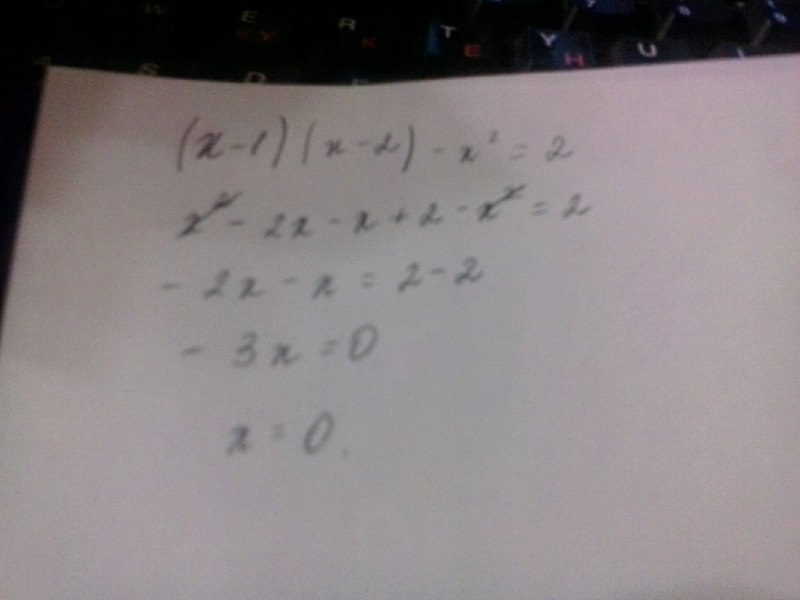 W E R T Y U
K E Н
A S D
(x-1)(x-2)-x²=2
x²-2x-x+2-x²=2
-2x-x=2-2
-3x=0
x=0.